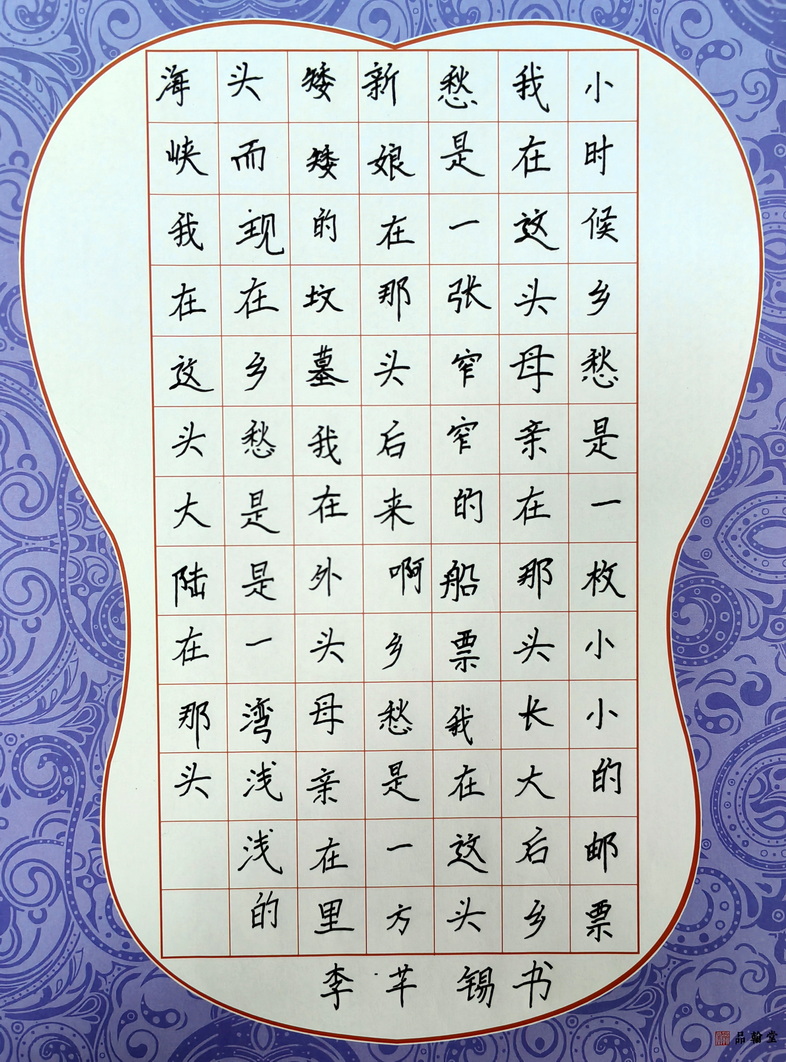 小时候乡愁是一枚小小的邮票
我在这头母亲在那头长大后乡
愁是一张窄窄的船票我在这头
新娘在那头后来啊乡愁是一方
矮矮的坟墓我在外头母亲在里
头而现在乡愁是是一湾浅浅的
海峡我在这头大陆在那头
李芊锡书
品翰堂